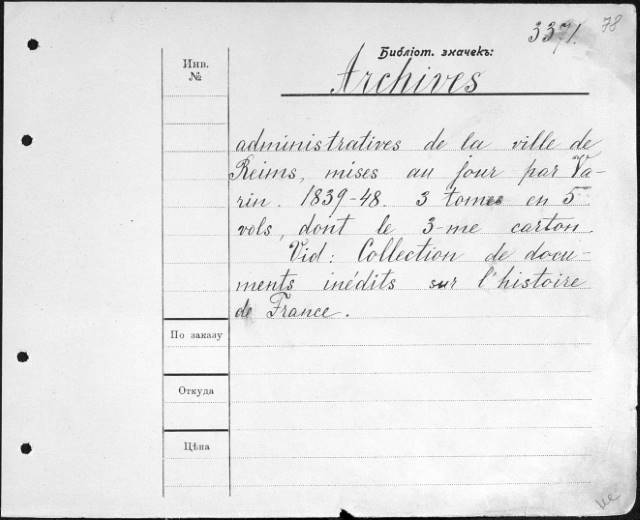 3371. 78
Библіот. значекъ:
Инв.
№
Archives
administratives de la ville de
Reims, mises au jour par Va-
rin. 1839-48. 3 tomes en 5
vols, dont le 3-me carton.
Vid: Collection de docu-
ments inédits sur l'histoire
de France.
По заказу
Откуда
Цѣна